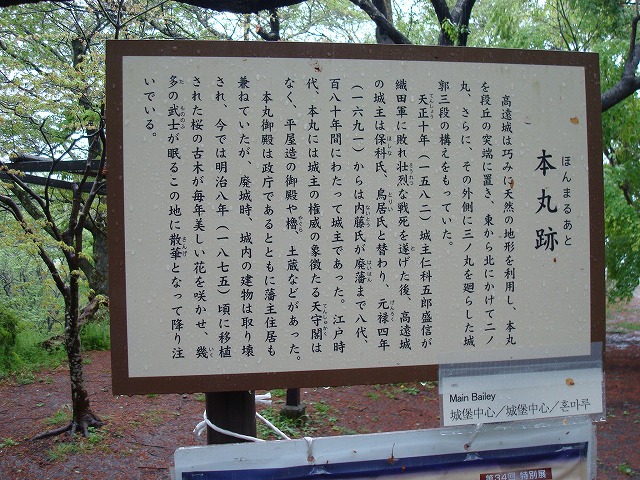 ほんまるあと
本丸跡
高遠城は巧みに天然の地形を利用し、本丸
を段丘の突端に置き、東から北にかけて二ノ
丸、さらに、その外側に三ノ丸を廻らした城
郭三段の構えをもっていた。
てんしょう
天正十年(一五八二)城主仁科五郎盛信が
そうれつ と
織田軍に敗れ壮烈な戦死を遂げた後、高遠城
ほしな とりい げんろく
の城主は保科氏、鳥居氏と替わり、元禄四年
ないとう はいはん
(一六九一)からは内藤氏が廃藩まで八代、
百八十年間にわたって城主であった。江戸時
てんしゅかく
代、本丸には城主の権威の象徴たる天守閣は
やぐら
なく、平屋造の御殿や櫓、土蔵などがあった。
本丸御殿は政庁であるとともに藩主住居も
兼ねていたが、廃城時、城内の建物は取り壊
され、今では明治八年(一八七五)頃に移植
された桜の古木が毎年美しい花を咲かせ、幾
もののふ さんげ
多の武士が眠るこの地に散華となって降り注
いでいる。
Main Bailey
城堡中心/城堡中心/혼마루
第34回 特別展